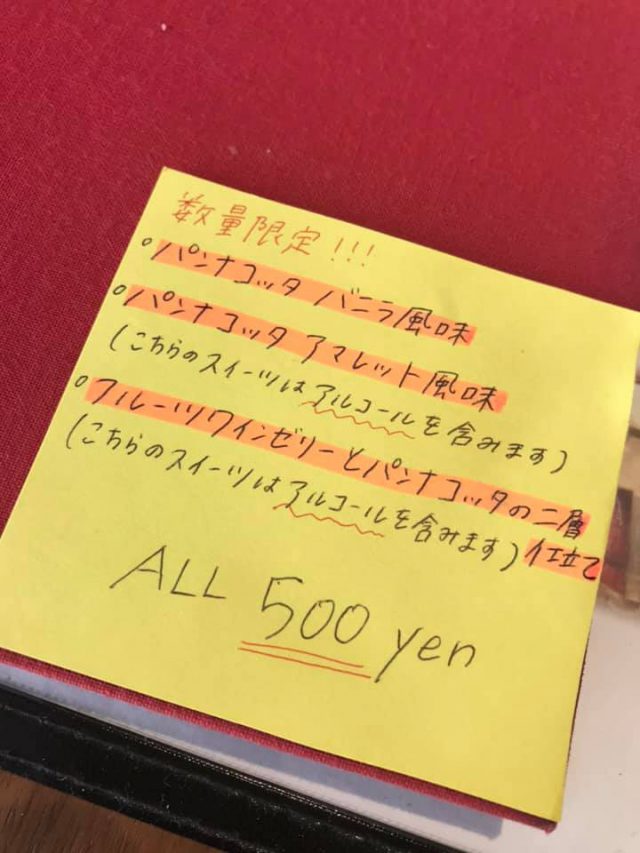 数量限定!!!
°パンナコッタ バニラ風味
°パンナコッタ アマレット風味
(こちらのスイーツはアルコールを含みます)
°フルーツワインゼリーとパンナコッタの二層
仕立て
(こちらのスイーツはアルコールを含みます)
ALL 500 yen